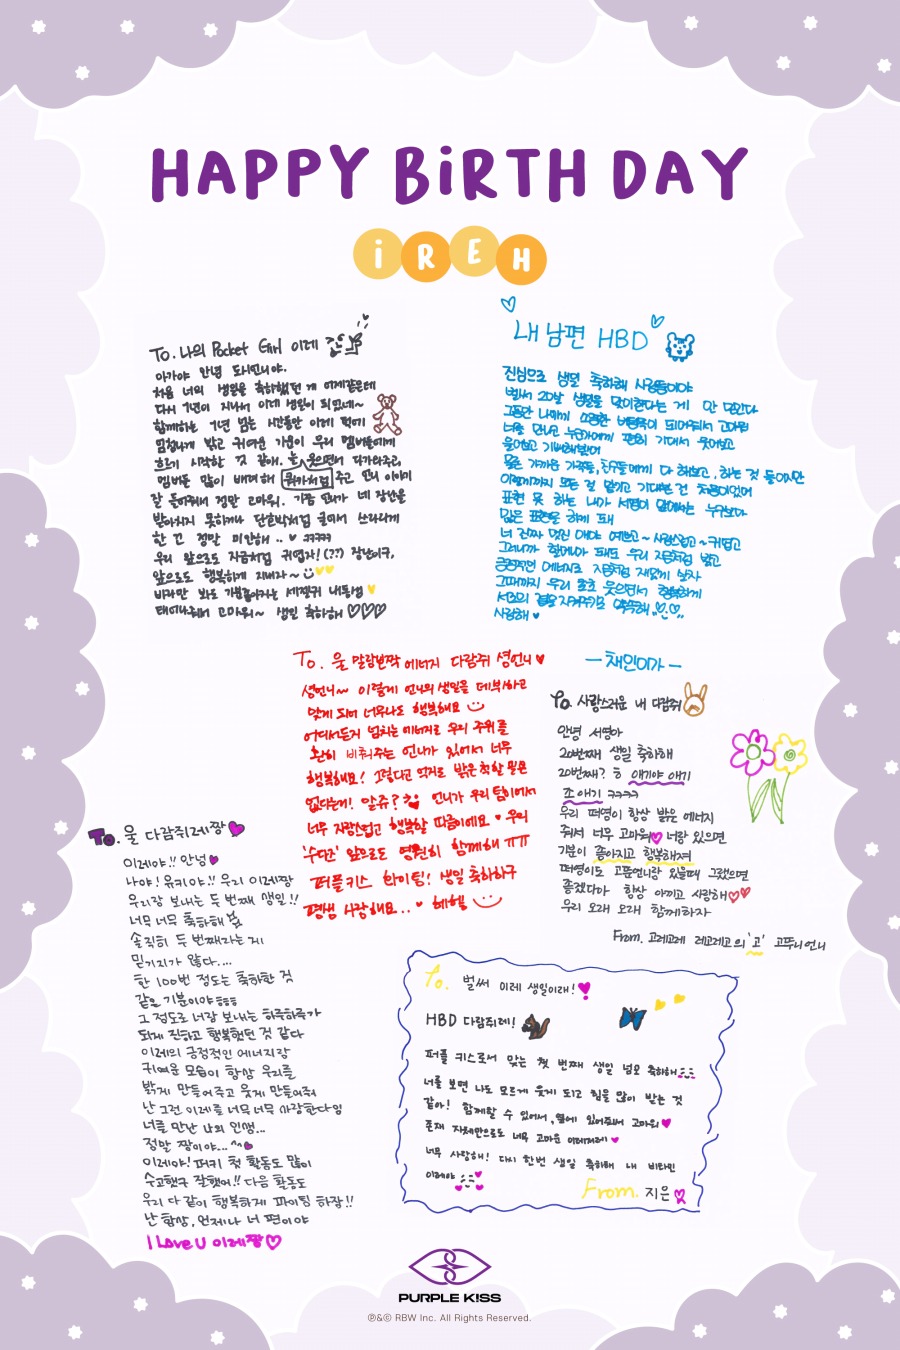 HAPPY BiRTH DAY
iREH
To. 나의 Pocket Girl 이레
아가야 안녕 도시언니야.
처음 너의 생일을 축하했던 게 어제같은데
다시 1년이 지나서 이레 생일이 되었네~
함께하는 1년 넘는 시간동안 이레 덕에
엄청나게 밝고 귀여운 기운이 우리 멤버들에게
흐르기 시작한 것 같아. 늘 웃으면서 다가와주고,
멤버들 많이 배려해 주고 언니 이야기
잘 들어줘서 정말 고마워. 가끔 언니가 네 장난을
받아치지 못하거나 단호박처럼 굴어서 쓰다리게
한 건 정말 미안해.. ♥ ㅋㅋㅋㅋ
우리 앞으로도 지금처럼 귀엽자! (??) 장난이구,
앞으로도 행복하게 지내자~
바라만 봐도 기분좋아지는 세젤귀 내동생
태어나줘서 고마워~ 생일 축하해 ♡♡♡
내 남편 HBD
진심으로 생일 축하해 사랑둥이야
벌써 20살 생일을 맞이한다는 게 안 믿긴다
그동안 나에게 소중한 버팀목이 되어줘서 고마워
너를 만나고 누군가에게 편히 기대서 웃어보고
울어보고 기뻐해봤어
물론 가까운 가족들, 친구들에게 다 해보고, 하는 것 들이지만
이렇게까지 모든 걸 맡기고 기대본 건 처음이었어
표현 못 하는 내가 서영이 앞에서는 누구보다
많은 표현을 하게 돼
너 진짜 멋진 애야 예쁘고~사랑스럽고~귀엽고
그러니까 할머니가 되도 우리 지금처럼 밝고
긍정적인 에너지로 지금처럼 재밌게 살자
그때까지 우리 호호 웃으면서 행복하게
서로의 곁을 지켜주기로 약속해..♡.♡..
사랑해 ♥
— 채인이가 —
To. 울 말랑반짝 에너지 다람쥐 셩언니 ♥
셩언니~ 이렇게 언니의 생일을 데뷔하고
맞게 되어 너무나도 행복해요
어디서든지 넘치는 에너지로 우리 주위를
환히 비춰주는 언니가 있어서 너무
행복해요! 그렇다고 억지로 밝은 척할 필욘
없다는거! 알쥬? 언니가 우리 팀이어서
너무 자랑스럽고 행복할 따름이에요 ♥ 우리
'수다즈' 앞으로도 영원히 함께해 ㅠㅠ
퍼플키스 화이팅! 생일 축하하구
평생 사랑해요.. ♥ 헤헿
To. 사랑스러운 내 다람쥐
안녕 서영아
20번째 생일 축하해
20번째? 흥 애기야 애기
쪼애기 ㅋㅋㅋㅋ
우리 떠영이 항상 밝은 에너지
줘서 너무 고마워♥ 너랑 있으면
기분이 좋아지고 행복해져
떠영이도 고뚜언니랑 있을때 그랬으면
좋겠다아 항상 아끼고 사랑해♡♡
우리 오래 오래 함께하자
From. 고레고레 레고레고의 '고' 고뚜니언니
To. 울 다람쥐레짱♥
이레야!! 안녕♥
나야! 유키야!! 우리 이레짱
우리랑 보내는 두 번째 생일!!
너무 너무 축하해
솔직히 두 번째라는 게
믿기지가 않다....
한 100번 정도는 축하한 것
같은 기분이야
그 정도로 너랑 보내는 하루하루가
되게 진하고 행복했던 것 같다
이레의 긍정적인 에너지랑
귀여운 모습이 항상 우리를
밝게 만들어주고 웃게 만들어줘
난 그런 이레를 너무 너무 사랑한다잉
너를 만난 나의 인생...
정말 짱이야... ^^♥
이레야! 퍼키 첫 활동도 많이
수고했구 잘했어!! 다음 활동도
우리 다 같이 행복하게 파이팅 하장!!
난 항상, 언제나 너 편이야
I Love U 이레짱♡
To. 벌써 이레 생일이래!
HBD 다람쥐레!
퍼플 키스로서 맞는 첫 번째 생일 넘모 축하해
너를 보면 나도 모르게 웃게 되고 힘을 많이 받는 것
같아! 함께할 수 있어서, 옆에 있어줘서 고마워♥
존재 자체만으로도 너무 고마운 이레씨레 ♥
너무 사랑해! 다시 한번 생일 축하해 내 비타민
이레야
From. 지은
PURPLE K!SS
℗&© RBW Inc. All Rights Reserved.